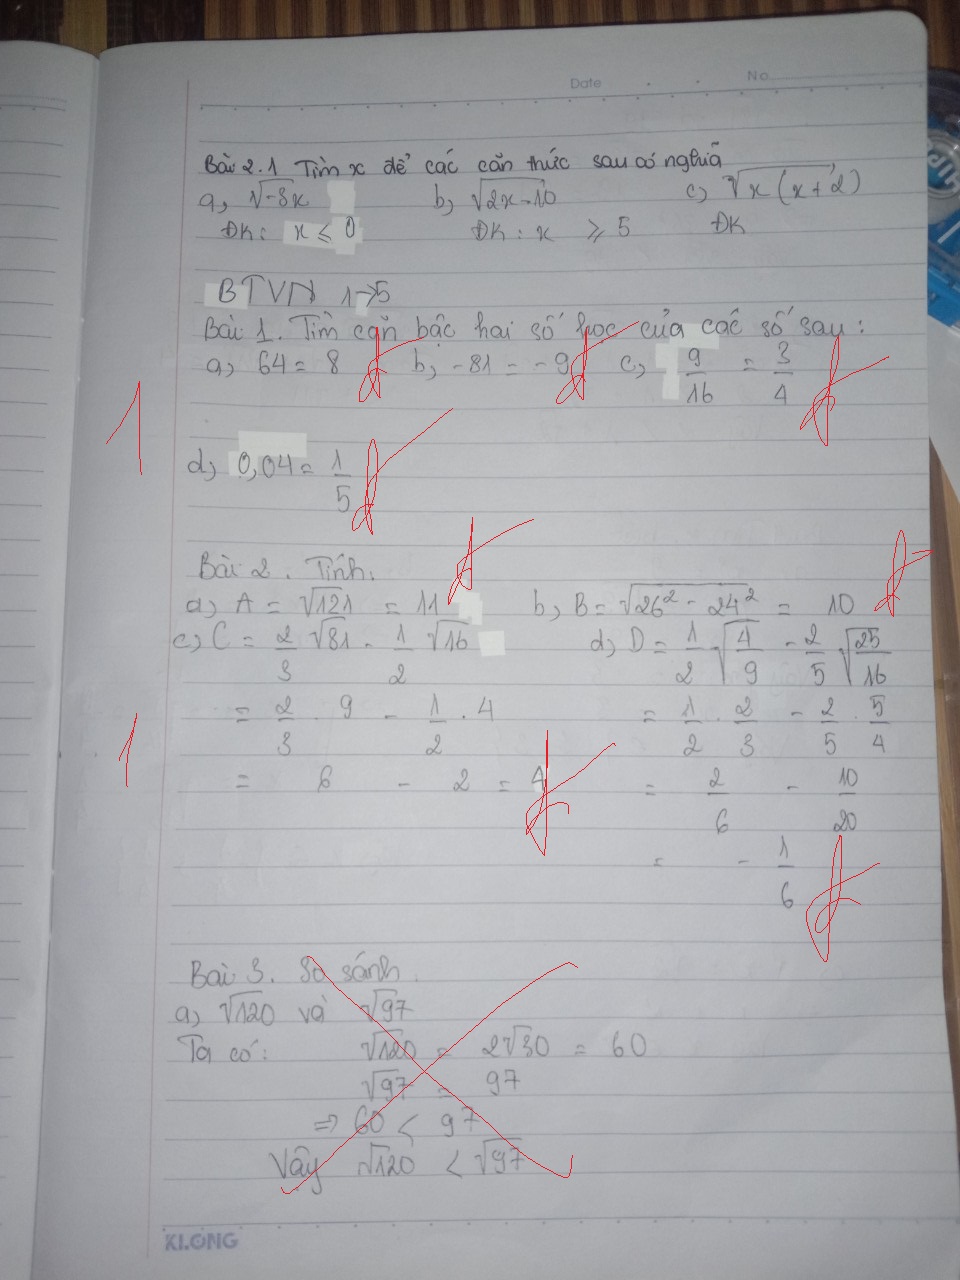 Date No
Bài 2.1 Tìm x để các căn thức sau có nghĩa
a, √-8x b, √2x-10 c, √x(x+2)
ĐK: x ≤ 0 ĐK: x ≥ 5 ĐK
BTVN 1→5
Bài 1. Tìm căn bậc hai số học của các số sau:
a, 64 = 8 b, -81 = -9 c, 9/16 = 3/4
1
d, 0,04 = 1/5
Bài 2. Tính.
a) A = √121 = 11 b, B = √26² - 24² = 10
c, C = 2/3 √81 - 1/2 √16 d, D = 1/2 √4/9 - 2/5 √25/16
= 2/3 . 9 - 1/2 . 4 = 1/2 . 2/3 - 2/5 . 5/4
1
= 6 - 2 = 4 = 2/6 - 10/20
= - 1/6
Bài 3. So sánh.
a, √120 và √97
Ta có: √120 = 2√30 = 60
√97 = 97
⇒ 60 < 97
Vậy √120 < √97
KLONG